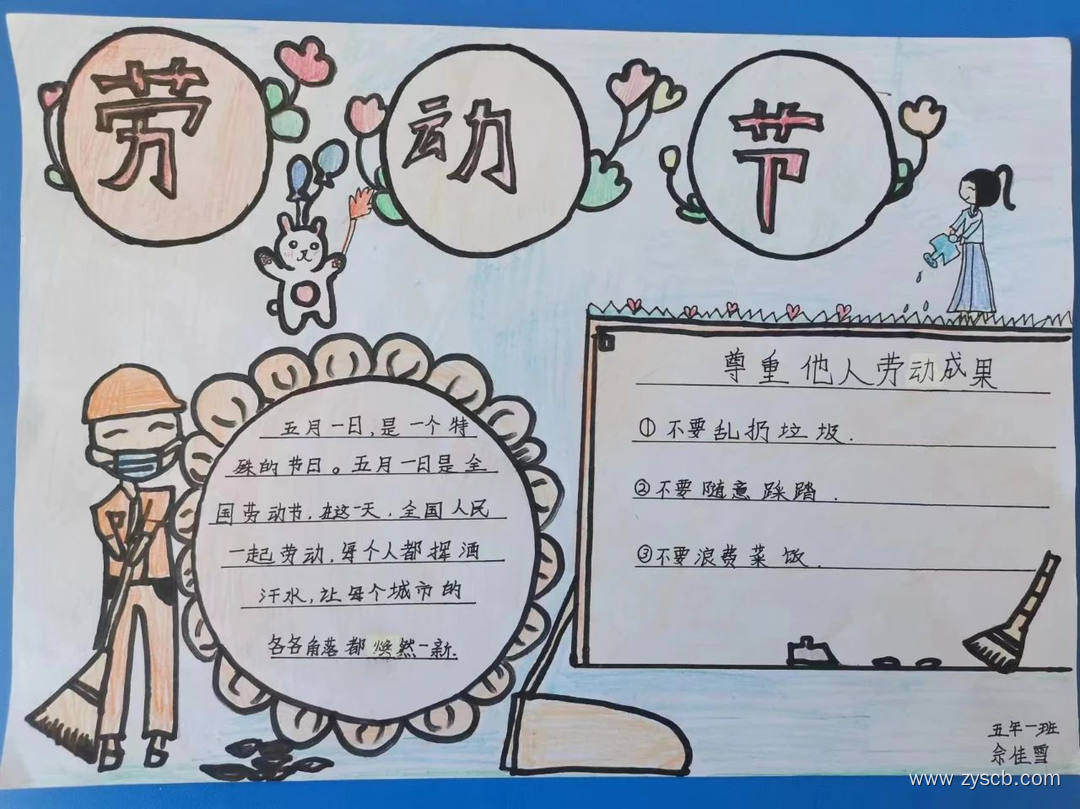 劳动节
五月一日,是一个特
殊的节日。五月一日是全
国劳动节,在这一天,全国人民
一起劳动,每个人都挥洒
汗水,让每个城市的
各各角落都焕然一新.
尊重他人劳动成果
①不要乱扔垃圾.
②不要随意踩踏.
③不要浪费菜饭.
五年一班
佘佳雪
www.zyscb.com